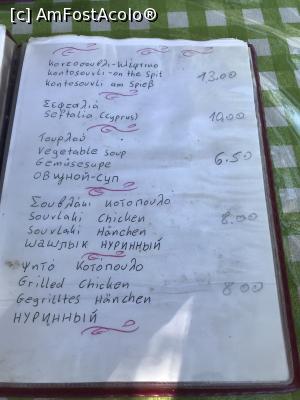 [c] AmFostAcolo®
Κοτεσουβλι-Κλέφτικο
Kontosouvli - on the Spit 13.00
Kontosouvli am Spieß
Σεφεαλιά
Seftalia (Cyprus) 10.00
Τουρλού
Vegetable Soup
Gemüsesupe 6.50
ОВЩНОЙ-СУП
Σουβλάκι Κοτόπουλο
Souvlaki Chicken 8.00
Souvlaki Hänchen
ШАШЛЫК НУРИННЫЙ
Ψητό Κοτόπουλο
Grilled Chicken 8.00
Gegrilltes Hänchen
НУРИННЫЙ